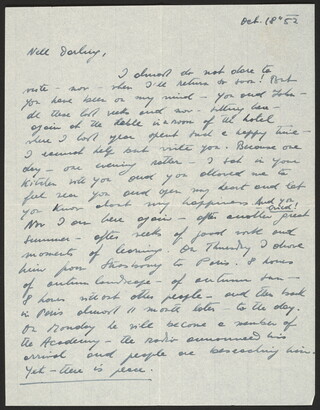 Oct. 18th 52
Nell Darling,
I almost do not dare to
write – now – when I'll return so soon! But
you have been on my mind – you and John –
all these last weeks and now – sitting here
again at the table in a room of the hotel
where I last year spent such a happy time –
I cannot help but write you. Because one
day – one evening rather – I sat in your
kitchen with you and you allowed me to
feel near you and open my heart and let
you know about my happiness. And you
cried!
Now I am here again – after another great
summer – after weeks of good work and
moments of learning. On Thursday I drove
him from Strasbourg to Paris. 8 hours
of autumn landscape – of autumn sun –
8 hours without other people – and then back
in Paris almost 11 months later – to the day.
On Monday he will become a member of
the Academy – the radio announced his
arrival and people are beseeching him.
Yet – there is peace.